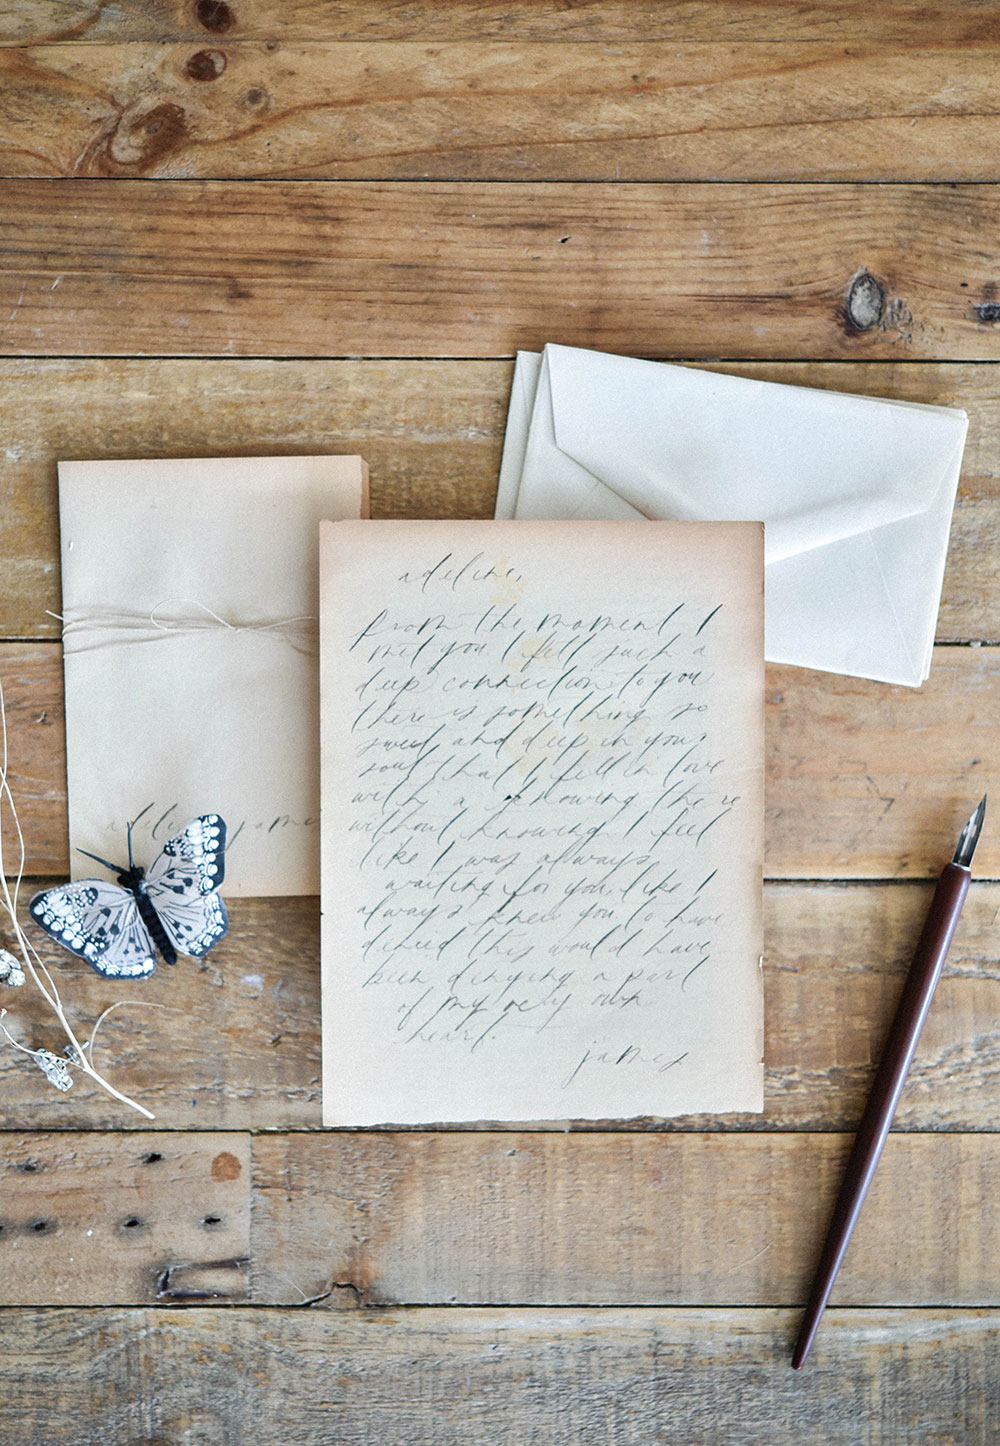 adeline,
from the moment I
met you I felt such a
deep connection to you
there is something so
sweet and deep in your
soul that I fell in love
with a knowing there
without knowing. I feel
like I was always
waiting for you, like I
always knew you. to have
denied this would have
been denying a part
of my very own
heart.
james
adeline james